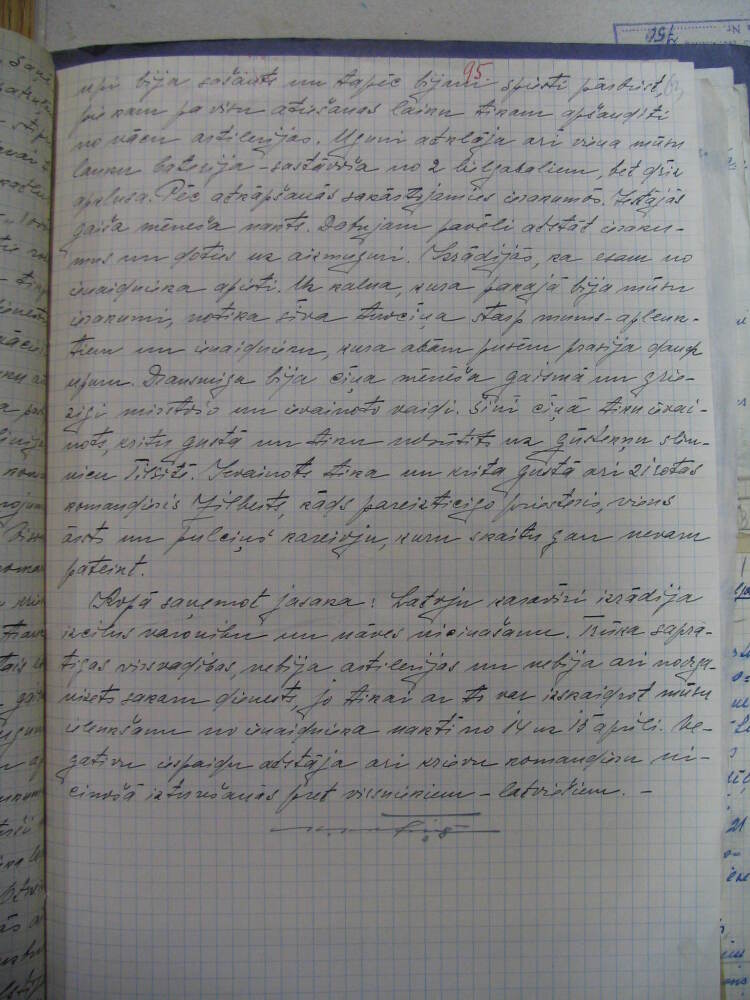 95
upi bija sašauts un tapēc bijam spiesti pārbrist,
pie kam pa visu atiešanas laiku tikām apšaudīti
no vācu artilerijas. Uguni atklāja arī viena mūsu
lauku baterija – sastāvoša no 2 lielgabaliem, bet drīz
apklusa. Pēc atkāpšanās sakārtojamies ierakumos. Iestājās
gaiša mēneša nakts. Dabujam pavēli atstāt ieraku-
mus un doties uz aizmuguri. Izrādījās, ka esam no
ienaidnieka apieti. Uz kalna, kura pakajā bija mūsu
ierakumi, notika sīva tuvcīņa starp mums – aplenk-
tiem un ienaidnieku, kura abām pusēm prasīja daudz
upuru. Drausmīga bija cīņa mēneša gaismā un grie-
zīgi mirstošo un ievainoto vaidi. Šinī cīņā tiku ievai-
nots, kritu gūstā un tiku nosūtīts uz gūstekņu slim-
nīcu Tilzītē. Ievainots tika un krita gūstā arī 2 rotas
komandieris Zilberts, kāds pareizticīgo priesteris, viens
ārsts un pulciņš kareivju, kuru skaitu gan nevaru
pateikt.
Kopā saņemot jāsaka: Latvju karavīri izrādīja
izcilus varonību un nāves nicināšanu. Trūka saprā-
tīgas virsvadības, nebija artilerijas un nebija arī noorga-
nizēts sakaru dienests, jo tikai ar to var izskaidrot mūsu
ielenkšanu no ienaidnieka naktī no 14 uz 15 apīli. Ne-
gatīvu iespaidu atstāja arī krievu komandieru ni-
cinošā izturēšanās pret virsniekiem – latviešiem. –